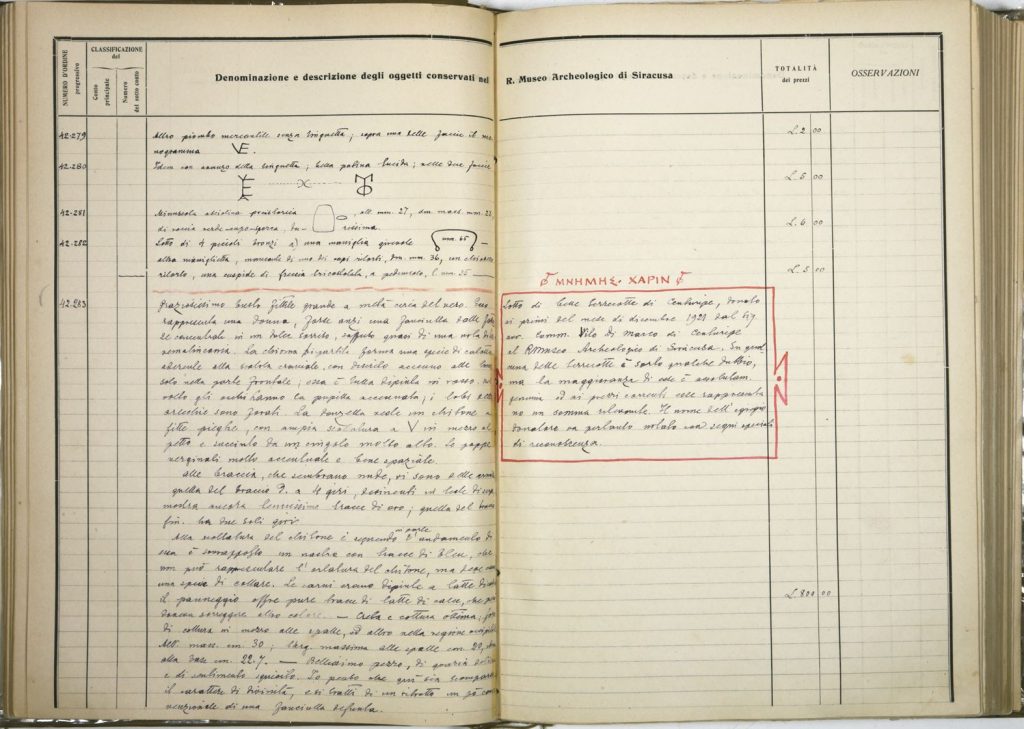 NUMERO D'ORDINE progressivo
CLASSIFICAZIONE del
Conto principale
Numero del sotto conto
Denominazione e descrizione degli oggetti conservati nel R. Museo Archeologico di Siracusa
TOTALITÀ dei prezzi
OSSERVAZIONI
42.279
Altro piombo mercantile senza linguetta; sopra una delle faccie il mo
nogramma VE.
L. 2 00
42.280
Idem con avanzo della linguetta; bella patina lucida; nelle due faccie
L. 5 00
42.281
Minuscola preistorica, alt. mm. 27, mm. 23
di roccia verde
L. 6 00
42.282
Lotto di 4 piccoli bronzi a) una maniglia girevole mm. 65
altra maniglietta, mancante di uno dei capi ritorti, mm. 36, un
ritorto, una cuspide di freccia a peduncolo, l. mm. 35
L. 5 00
42.283
busto fittile grande a metà circa del vero. Esso
rappresenta una donna, forse anzi una fanciulla dalle
in un dolce sorriso, quasi di una nota di
malinconia. La chioma bipartita forma una specie di calotta
aderente alla calotta craniale, con accenno alle
solo nella parte frontale; essa è tutta dipinta in rosso; nel
volto gli occhi hanno la pupilla accennata; i lobi delle
orecchie sono forati. La donzella veste un chitone a
fitte pieghe, con ampia scollatura a V in mezzo al
petto e succinto da un cingolo molto alto. Le poppe
verginali molto accentuate e bene spaziate.
Alle braccia, che sembrano nude, vi sono delle
quella del braccio d. a 4 giri, desinenti in teste di
mostra ancora tracce di oro; quella del
sin. ha due soli giri.
Alla scollatura del chitone e seguendo in parte l'andamento di
essa è sovrapposto un nastro con tracce di bleu, che
non può rappresentare l'orlatura del chitone, ma
una specie di collare. Le carni erano dipinte a latte di
il panneggio offre pure tracce di latte di calce, che
sorreggere altro colore. — Creta e cottura ottima;
di cottura in mezzo alle spalle, ed altro nella regione
Alt. mass. cm. 30; larg. massima alle spalle cm. 22,
alla base cm. 22.7. — Bellissimo pezzo, di
e di sentimento squisito. Io penso che qui sia scomparso
il carattere di divinità, e si tratti di un ritratto un pò con
venzionale di una fanciulla defunta.
L. 800 00
ΜΝΗΜΗΣ. ΧΑΡΙΝ
Lotto di belle terrecotte di Centuripe, donato
ai primi del mese di dicembre 1921 dal
avv. Comm. Vito di Marco di Centuripe
al R. Museo Archeologico di Siracusa. In qual
cuna delle terrecotte è sorto qualche dubbio,
ma la maggioranza di esse è assolutam.
genuina ed ai prezzi correnti esse rappresenta
no un comma rilevante. Il nome dell'egregio
donatore va pertanto notato con segni speciali
di riconoscenza.